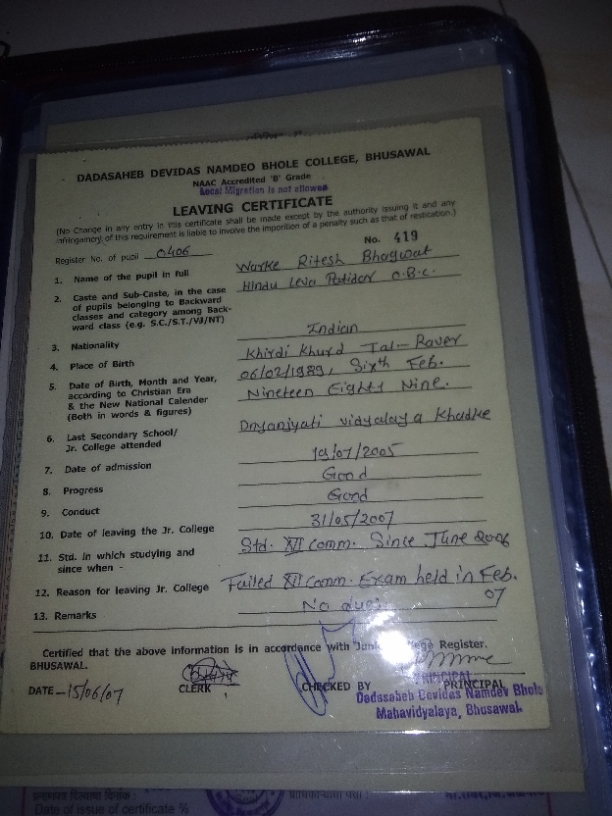 DADASAHEB DEVIDAS NAMDEO BHOLE COLLEGE, BHUSAWAL
NAAC Accredited 'B' Grade
Local Migration is not allowed
LEAVING CERTIFICATE
(No Change in any entry in this certificate shall be made except by the authority issuing it and any
infringment of this requirement is liable to involve the imporition of a penalty such as that of restication.)
Register No. of pupil 0406
No. 419
1. Name of the pupil in full Warke Ritesh Bhagwat
2. Caste and Sub-Caste, in the case Hindu Leva Patidar O.B.C.
of pupils belonging to Backward
classes and category among Back-
ward class (e.g. S.C./S.T./VJ/NT)
3. Nationality Indian
4. Place of Birth Khirdi Khurd Tal-Raver
5. Date of Birth, Month and Year, 06/02/1989, Sixth Feb.
according to Christian Era Nineteen Eighty Nine.
& the New National Calender
(Both in words & figures)
6. Last Secondary School/ Dnyanjyoti vidyalaya Khadke
Jr. College attended
7. Date of admission 19/07/2005
8. Progress Good
9. Conduct Good
10. Date of leaving the Jr. College 31/05/2007
11. Std. in which studying and Std. XII Comm. Since June 2006
since when -
12. Reason for leaving Jr. College Failed XII Comm. Exam held in Feb.
07
13. Remarks No dues
Certified that the above information is in accordance with Junior College Register.
BHUSAWAL.
DATE - 15/06/07 CLERK CHECKED BY PRINCIPAL
PRINCIPAL
Dadasaheb Devidas Namdev Bhole
Mahavidyalaya, Bhusawal.
Date of issue of certificate